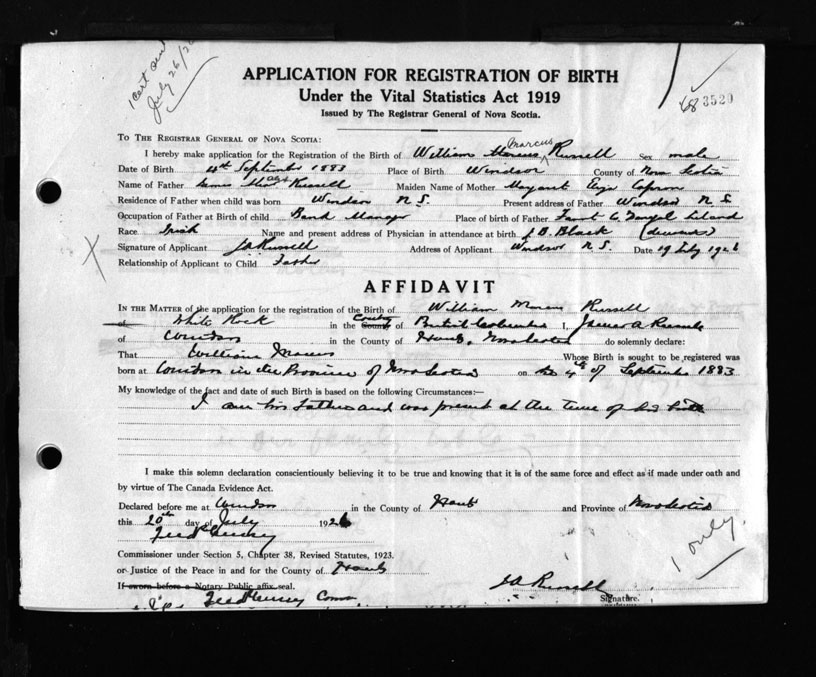 1 Cert and
July 26/26
3520
APPLICATION FOR REGISTRATION OF BIRTH
Under the Vital Statistics Act 1919
Issued by The Registrar General of Nova Scotia.
TO THE REGISTRAR GENERAL OF NOVA SCOTIA:
Marcus
I hereby make application for the Registration of the Birth of William Russell Sex male
Date of Birth 4th September 1883 Place of Birth Windsor County of Nova Scotia
Name of Father James Russell Maiden Name of Mother Margaret
Residence of Father when child was born Windsor N S. Present address of Father Windsor N S.
Occupation of Father at Birth of child Bank Manager Place of birth of Father Island
Race Irish Name and present address of Physician in attendance at birth J B. Black (deceased)
Signature of Applicant JA Russell Address of Applicant Windsor N S. Date 19 July 1926
Relationship of Applicant to Child Father
AFFIDAVIT
IN THE MATTER of the application for the registration of the Birth of William Marcus Russell
of White Rock in the County of British Columbia I, James A Russell
of Windsor in the County of Hants, Nova Scotia do solemnly declare:
That William Marcus Whose Birth is sought to be registered was
born at Windsor in the Province of Nova Scotia on the 4th of September 1883
My knowledge of the fact and date of such Birth is based on the following Circumstances:—
I am his father and was present at the time of his birth
I make this solemn declaration conscientiously believing it to be true and knowing that it is of the same force and effect as if made under oath and
by virtue of The Canada Evidence Act.
Declared before me at Windsor in the County of Hants and Province of Nova Scotia
this 20th day of July 1926
1 only.
Commissioner under Section 5, Chapter 38, Revised Statutes, 1923.
or Justice of the Peace in and for the County of Hants
If sworn before a Notary Public affix seal.
JA Russell
Signature.